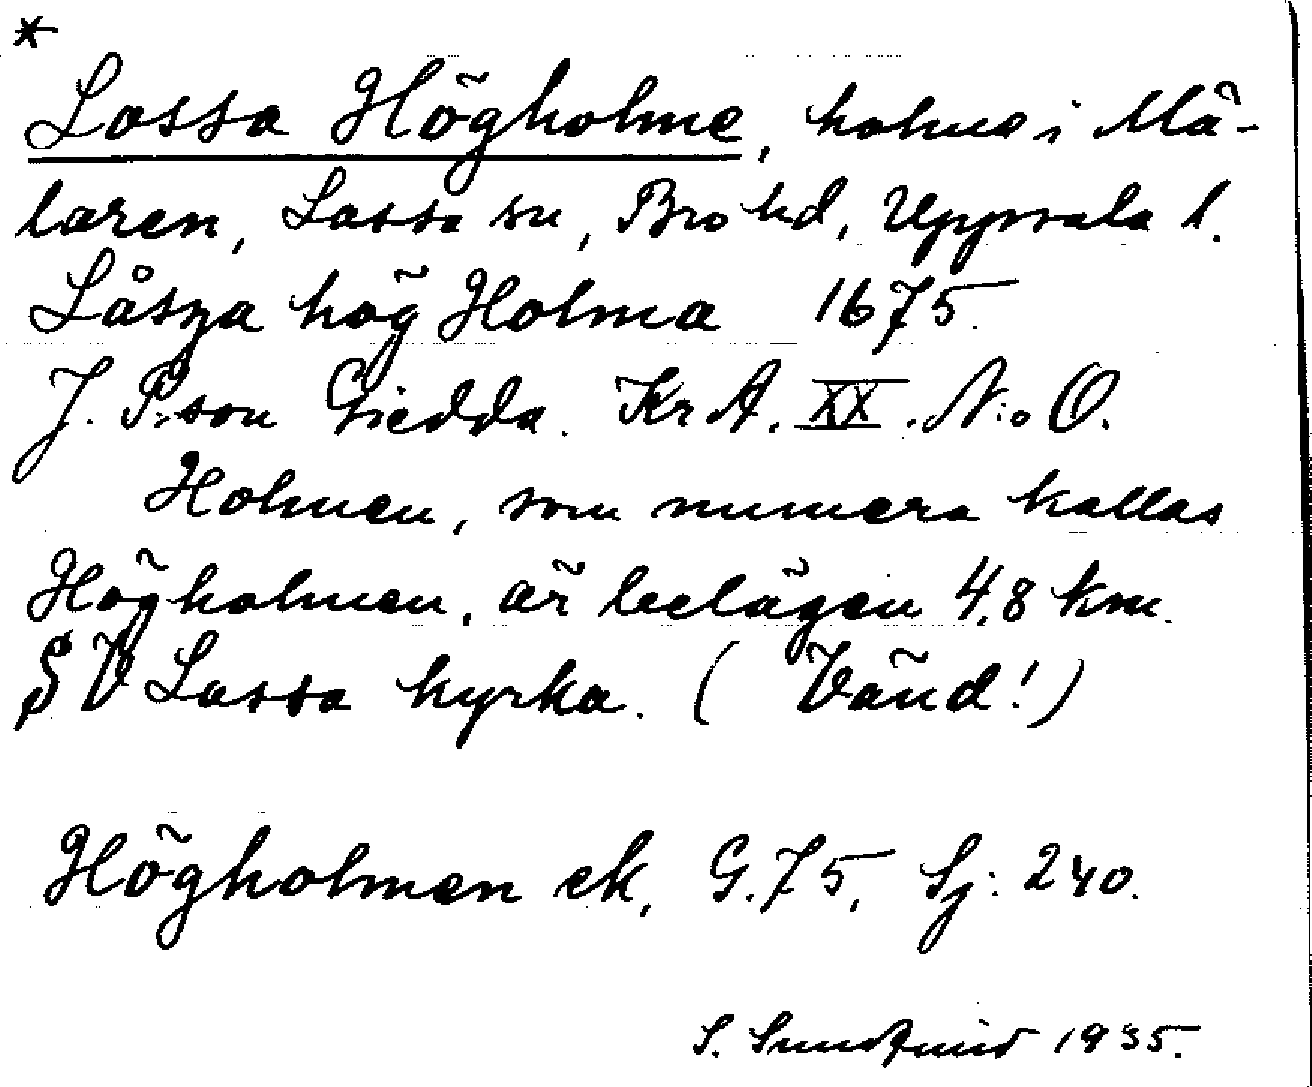 *
Lossa Högholme, holme i Mä-
laren, Lossa sn, Bro hd, Uppsala l.
Låsza hög Holma 1675.
J. P:son Giedda. KrA. XX. N:o O.
Holmen, som numera kallas
Högholmen, är belägen 4,8 km.
SV Lossa kyrka. (Vänd!)
Högholmen ek, G. 75, Sj: 240.
S. 1935.